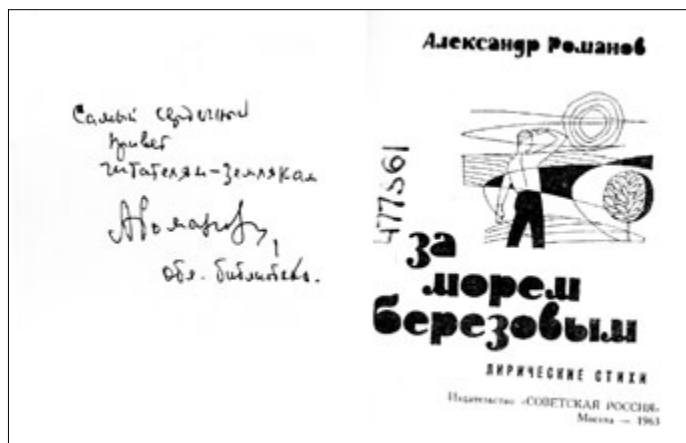 Самый сердечный
привет
читателям-землякам
АРоманов,
обл. библиотека.
Александр Романов
477561
за
морем
березовым
ЛИРИЧЕСКИЕ СТИХИ
Издательство «СОВЕТСКАЯ РОССИЯ»
Москва — 1963